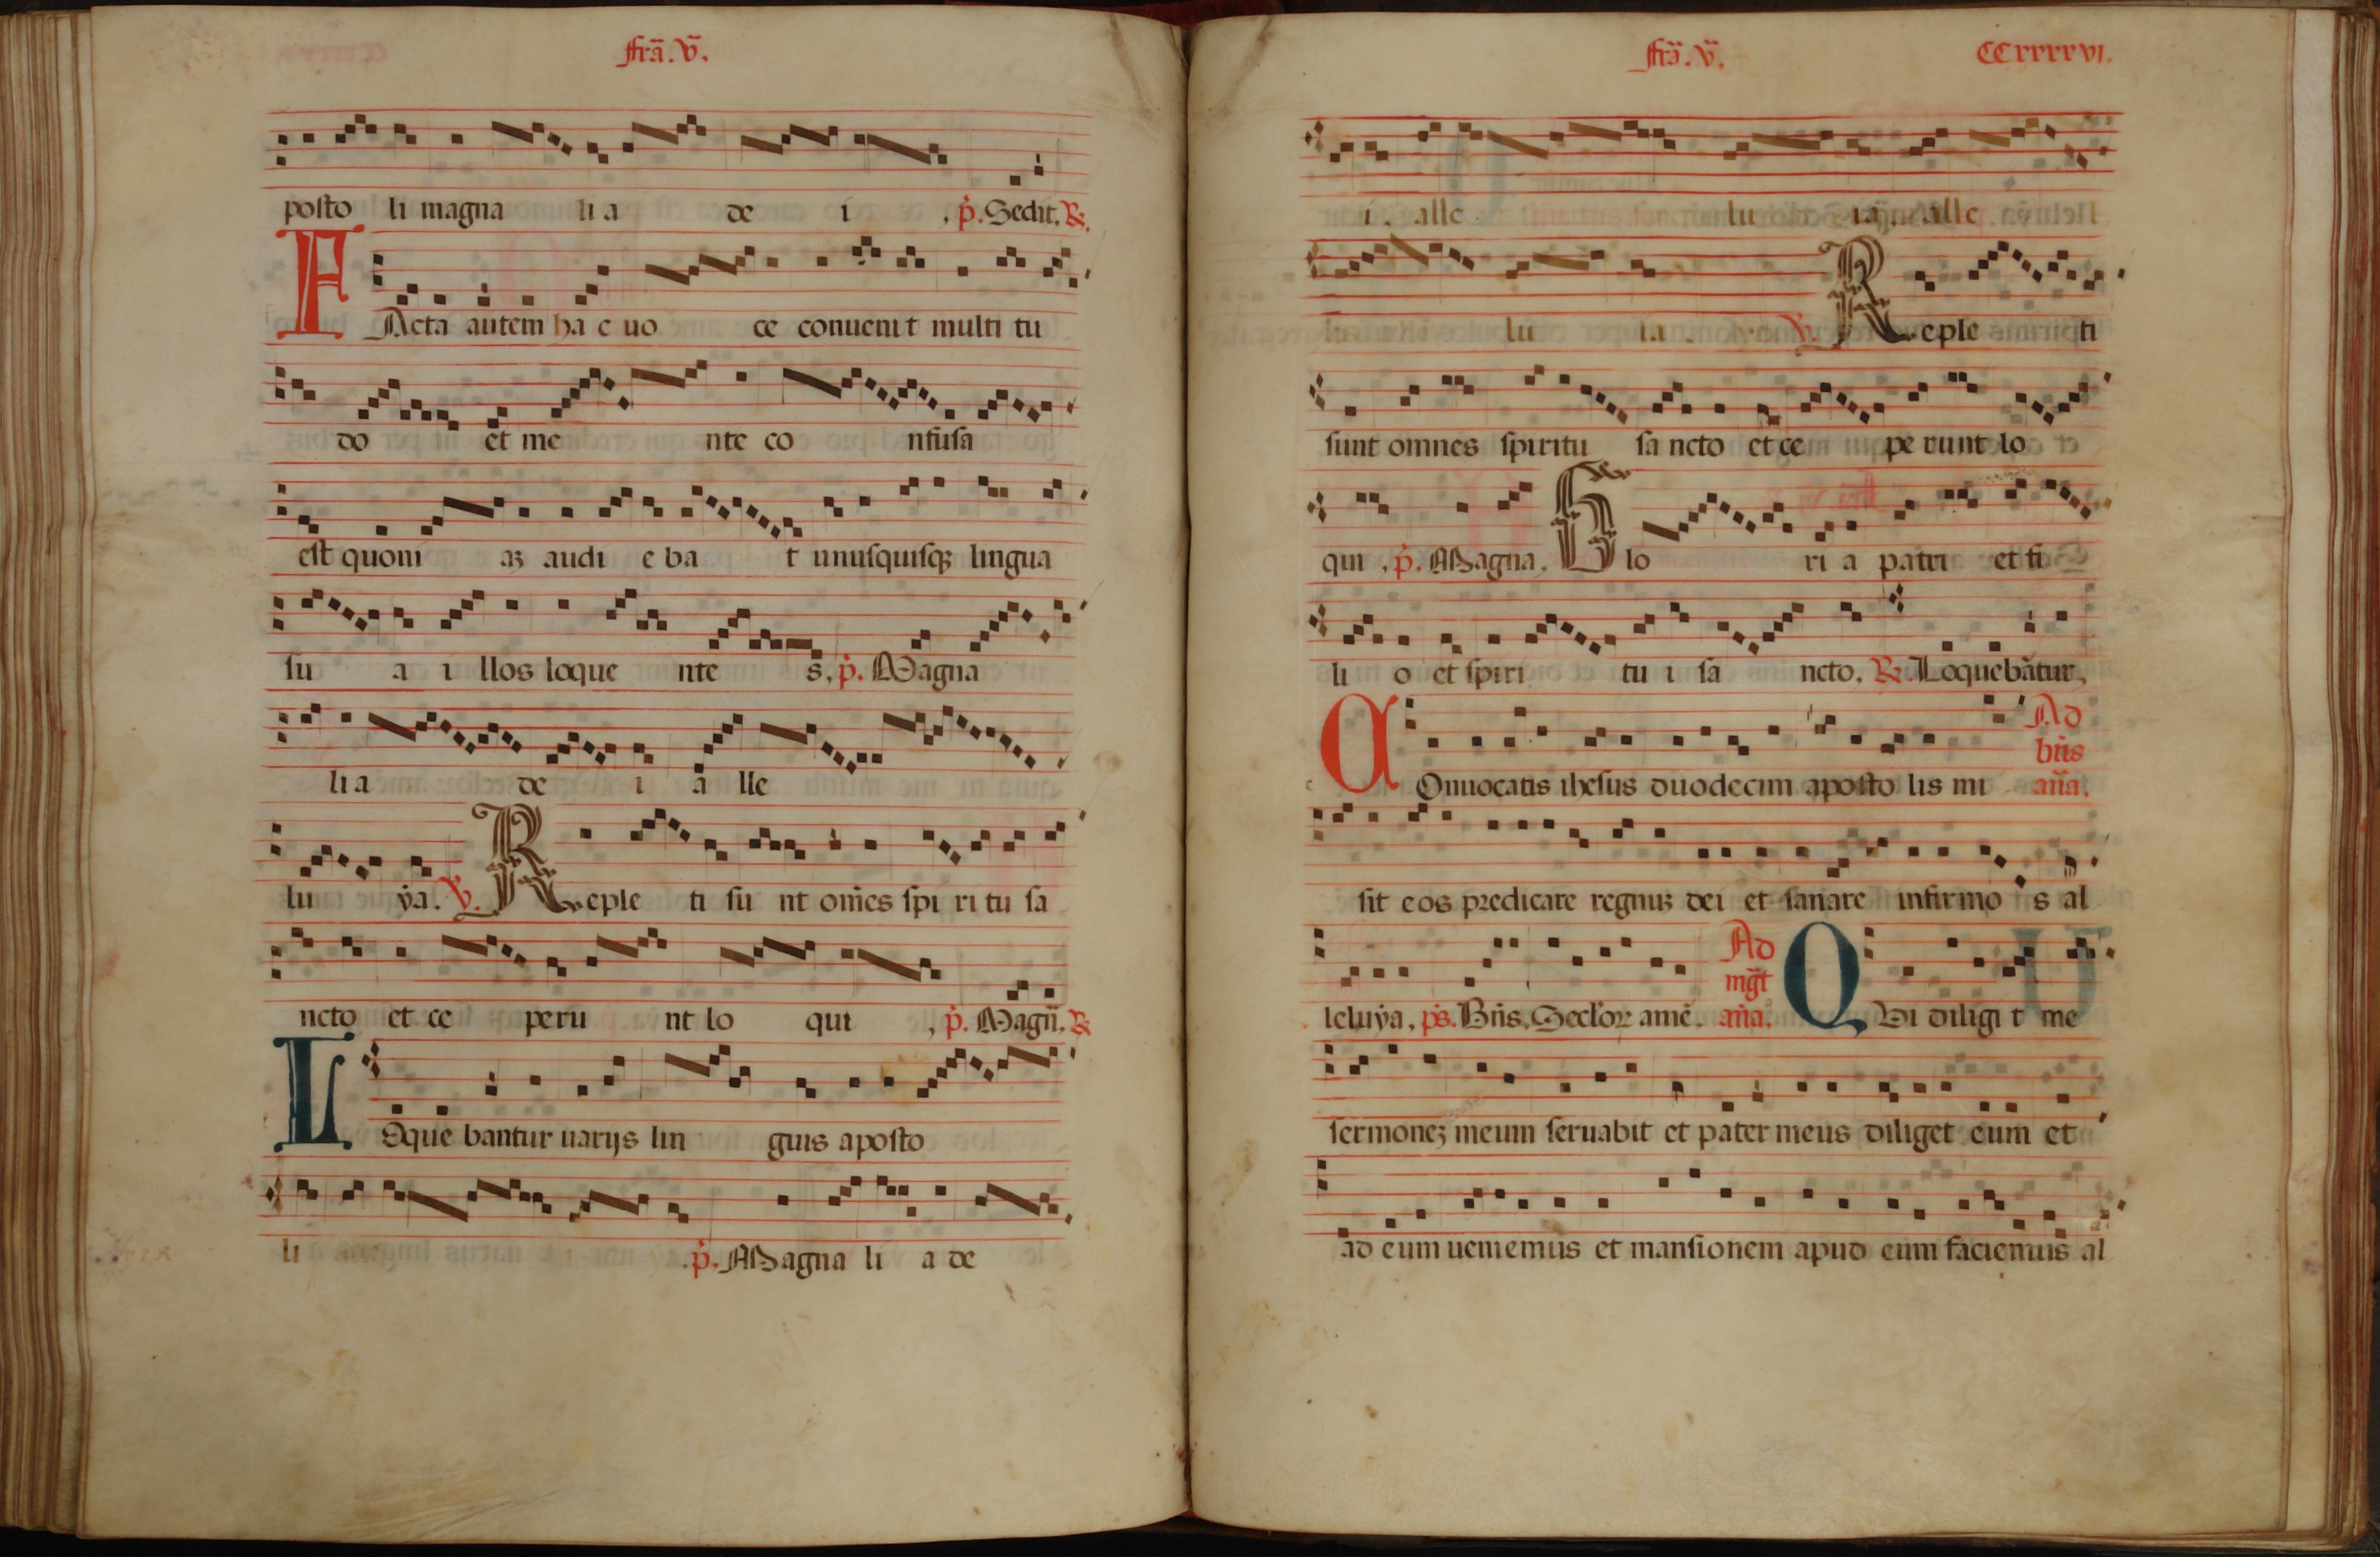 ffrã. v̄.
posto li magna li a de i , p̃. Sedit. ℟.
F Acta autem ha c uo ce conuenit multi tu
do et me nte co nfusa
est quoni aȝ audi e ba t unusquisqȝ lingua
su a i llos loque nte s, p̃. Magna
li a de i a lle
lu ẏa. ℣. R eple ti su nt om̄es spi ri tu sa
ncto et ce peru nt lo qui , p̃. Magñ. ℟
L Oque bantur uarijs lin guis aposto
li p̃. Magna li a de
ffrã. v̄. CCxxxxvi.
i. alle lu ia. alle
lu ia . ℣. R eple ti
sunt omnes spiritu sa ncto et ce pe runt lo
qui , p̃. Magna. G lo ri a patri et fi
li o et spiri tu i sa ncto. ℟. Loquebātur,
C Onuocatis ihesus duodecim aposto lis mi Ad bñs añа.
sit eos predicare regnuȝ dei et sanare infirmo s al
leluẏa, p̃s. Bñs. Seclor̄ amē. Ad mg̃t aña. Q Vi diligi t me
sermoneȝ meum seruabit et pater meus diliget eum et
ad eum ueniemus et mansionem apud eum faciemus al